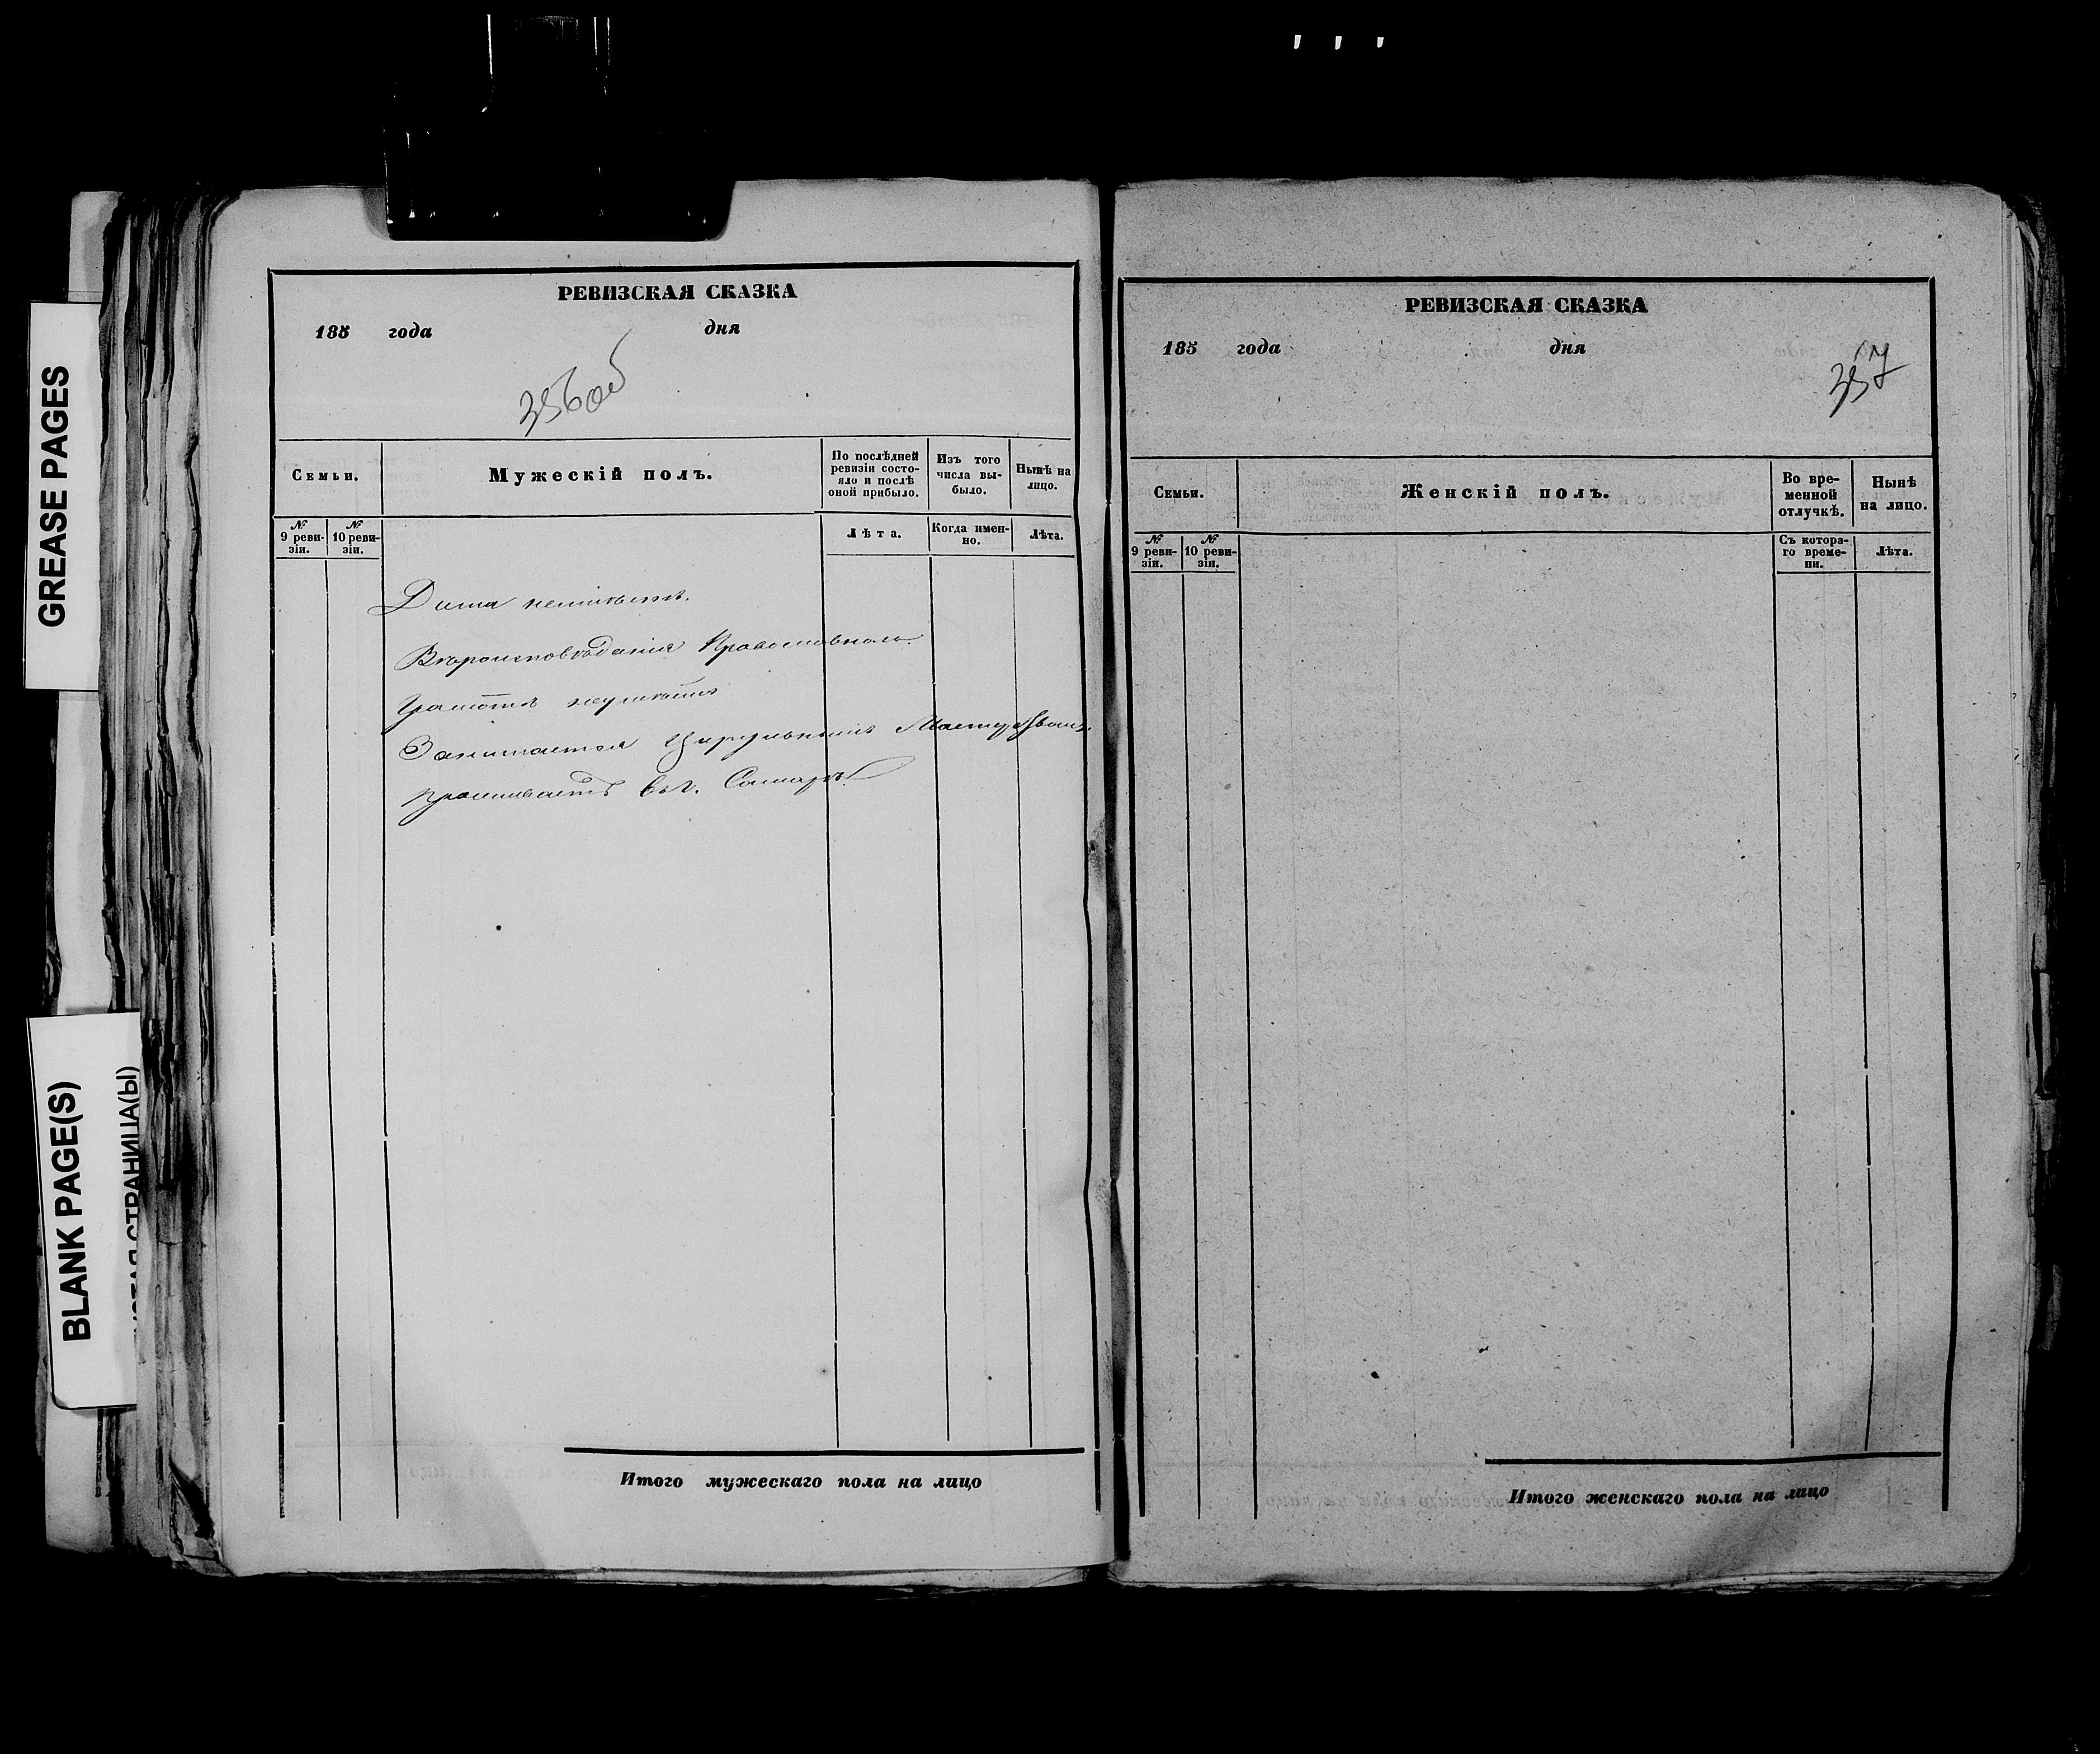 GREASE PAGES
BLANK PAGE(S)
СТРАНИЦА(Ы)
РЕВИЗСКАЯ СКАЗКА
185 года дня
356 об
Семьи.
Мужескій полъ.
По послѣдней ревизіи состояло и послѣ оной прибыло.
Изъ того числа выбыло.
Нынѣ на лицо.
№ 9 ревизіи.
№ 10 ревизіи.
Лѣта.
Когда именно.
Лѣта.
Дома неимѣетъ.
Вѣроисповѣданія Православнаго
Грамотѣ неумѣетъ
Занимается Цирульнымъ Мастерствомъ
проживаетъ въ г. Самарѣ
Итого мужескаго пола на лицо
РЕВИЗСКАЯ СКАЗКА
185 года дня
357
Семьи.
Женскій полъ.
Во временной отлучкѣ.
Нынѣ на лицо.
№ 9 ревизіи.
№ 10 ревизіи.
Съ котораго времени.
Лѣта.
Итого женскаго пола на лицо